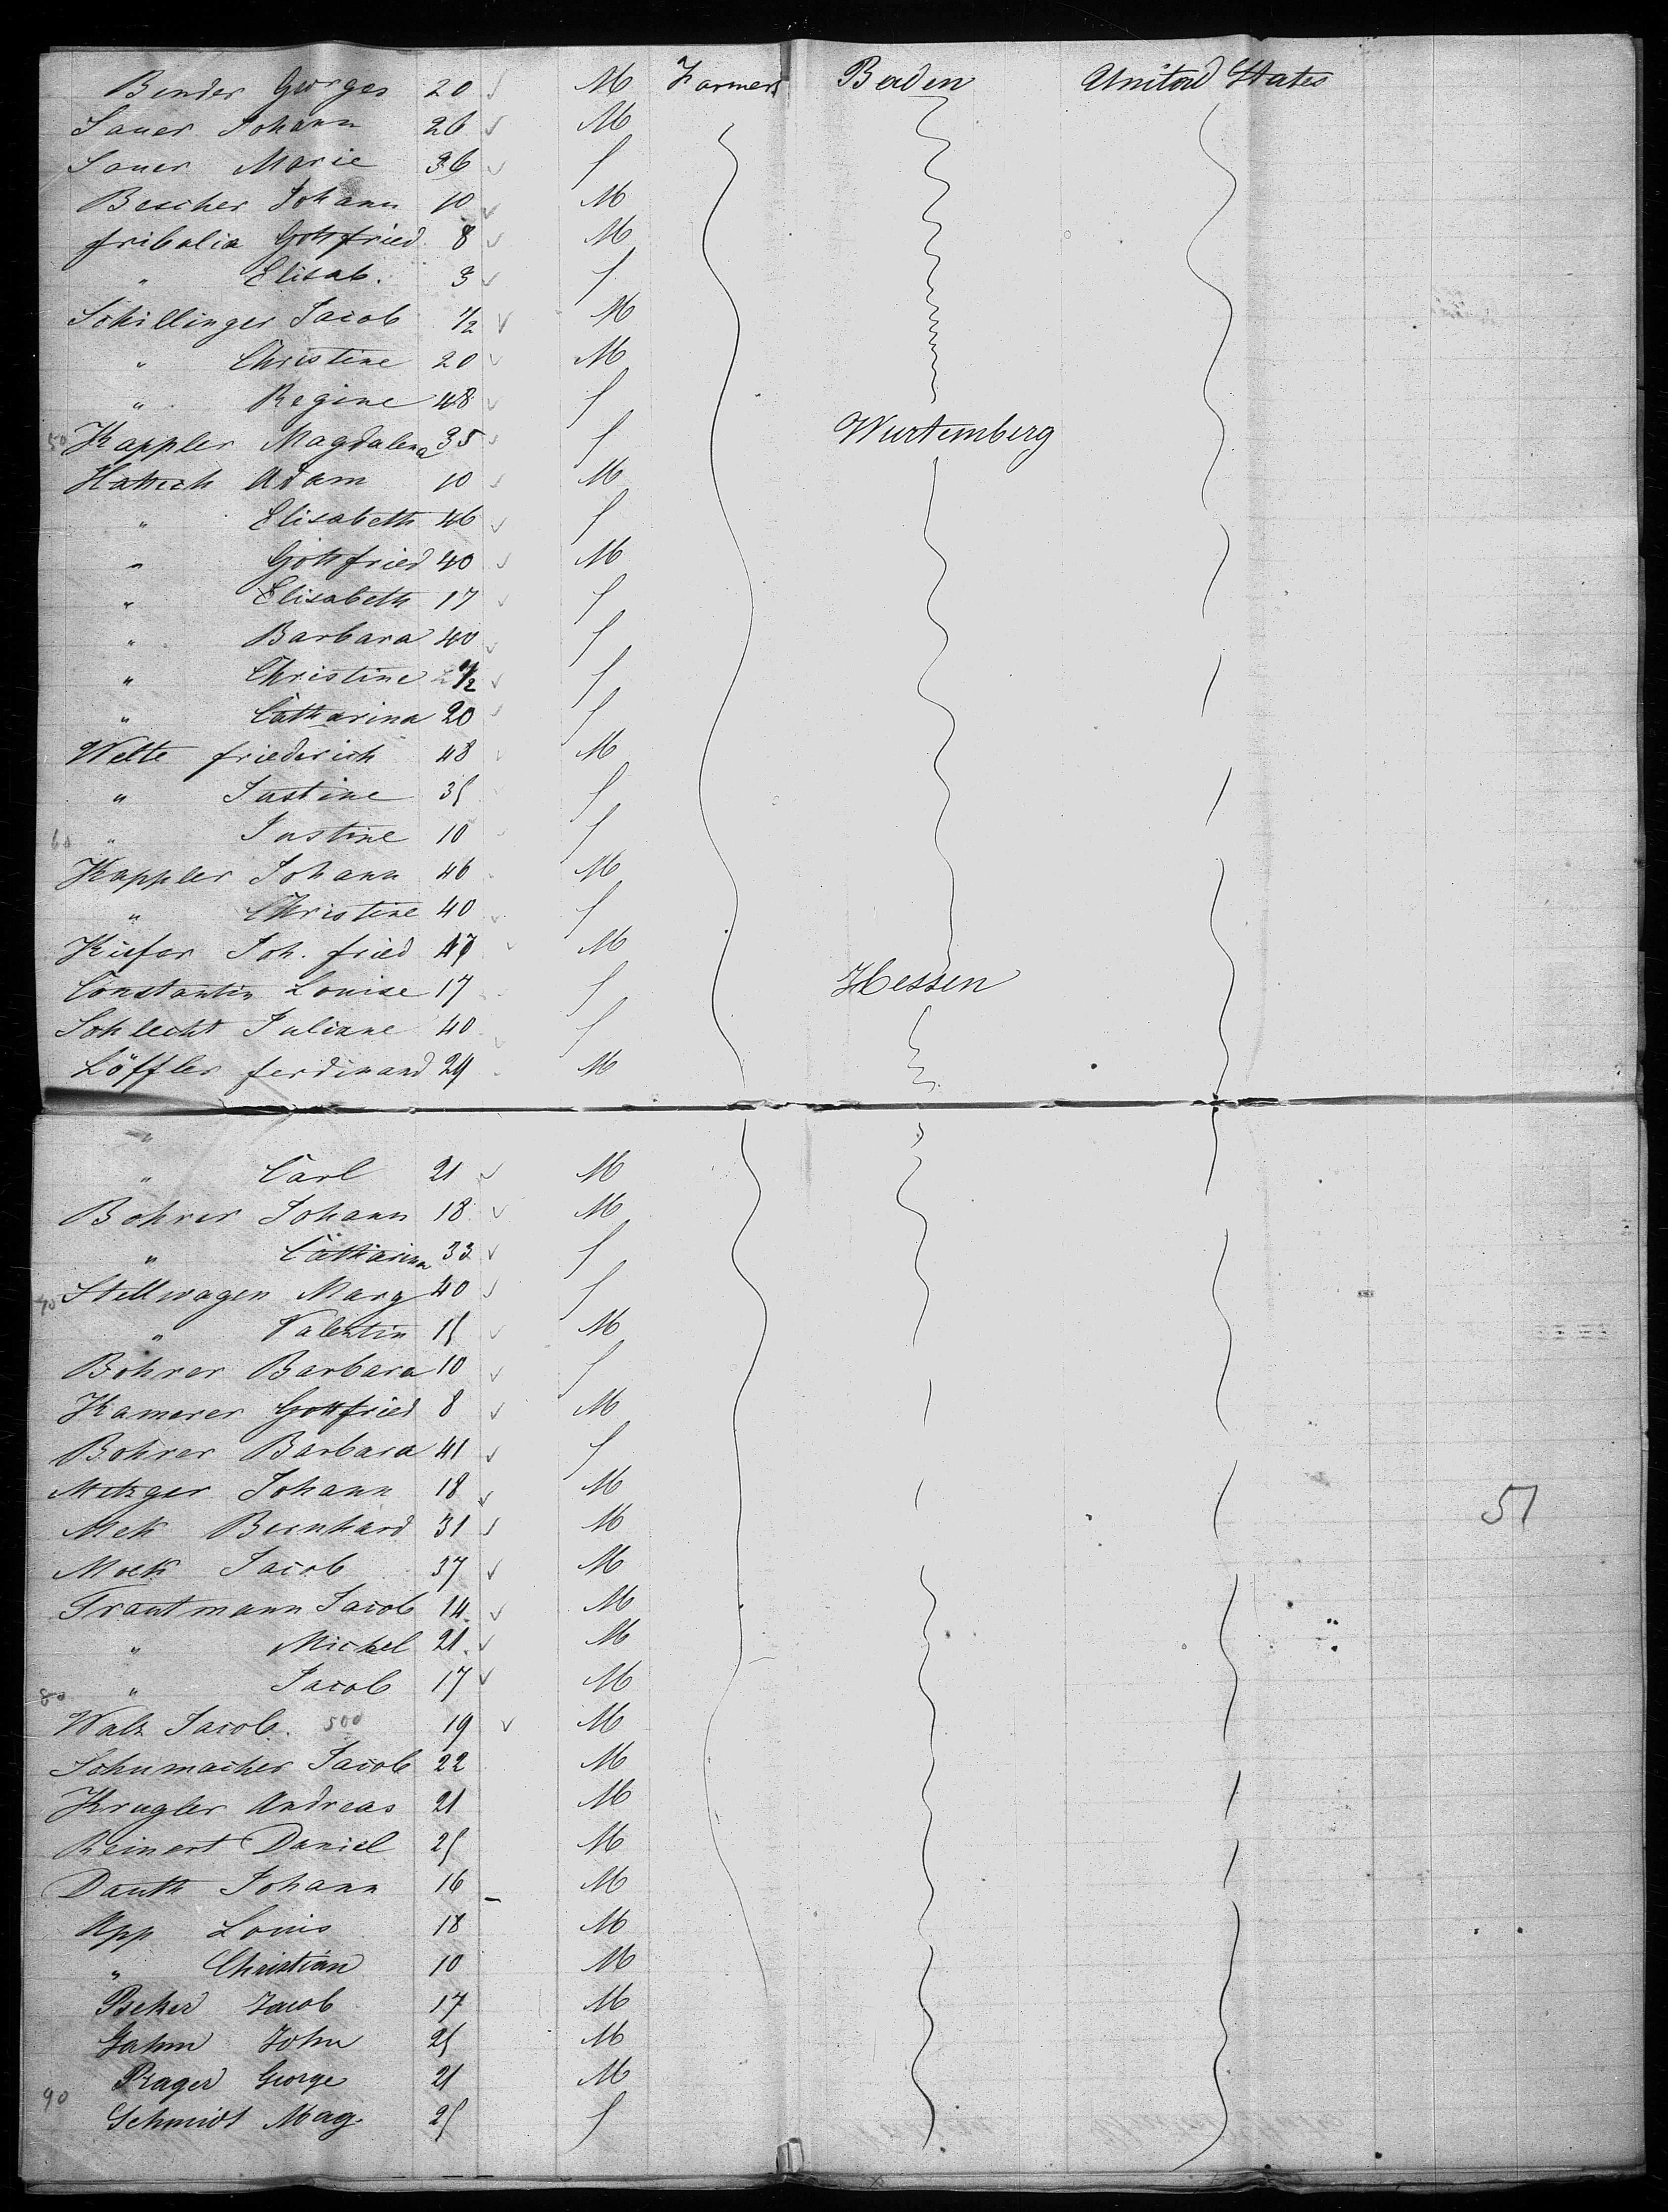 Bender Georges 20 M Farmers Baden United States
Sauer Johann 26 M
Sauer Marie 36 f
Bescher Johann 10 M
fribolia Gottfried 8 M
" Elisab. 3 f
Schillinger Jacob 1/2 M
" Christine 20 M
" Regine 48 f
50 Kappler Magdalena 35 f Wurtemberg
Hattich Adam 10 M
" Elisabeth 46 f
" Gottfried 40 M
" Elisabeth 17 f
" Barbara 40 f
" Christine 1/2 f
" Catharina 20 f
Welte friederich 48 M
" Justine 35 f
60 " Justine 10 f
Kappler Johann 46 M
" Christine 40 f
Kiefer Joh. fried 47 M
Constantin Louise 17 f Hessen
Schlecht Juliane 40 f
Löffler ferdinand 29 M
"
" Carl 21 M
Bohrer Johann 18 M
" Catharina 33 f
70 Stellwagen Marg 40 f
" Valentin 15 M
Bohrer Barbara 10 f
Kamerer Gottfried 8 M
Bohrer Barbara 41 f
Metzger Johann 18 M
Mek Bernhard 31 M 51
Moek Jacob 37 M
Trautmann Jacob 14 M
" Michel 21 M
80 " Jacob 17 M
Walz Jacob. 500 19 M
Schumacher Jacob 22 M
Krugler Andreas 21 M
Reinert Daniel 25 M
Dauth Johann 16 M
App Louis 18 M
" Christian 10 M
Jacob 17 M
Gahm John 25 M
Prager George 21 M
90 Schmidt Mag. 25 f